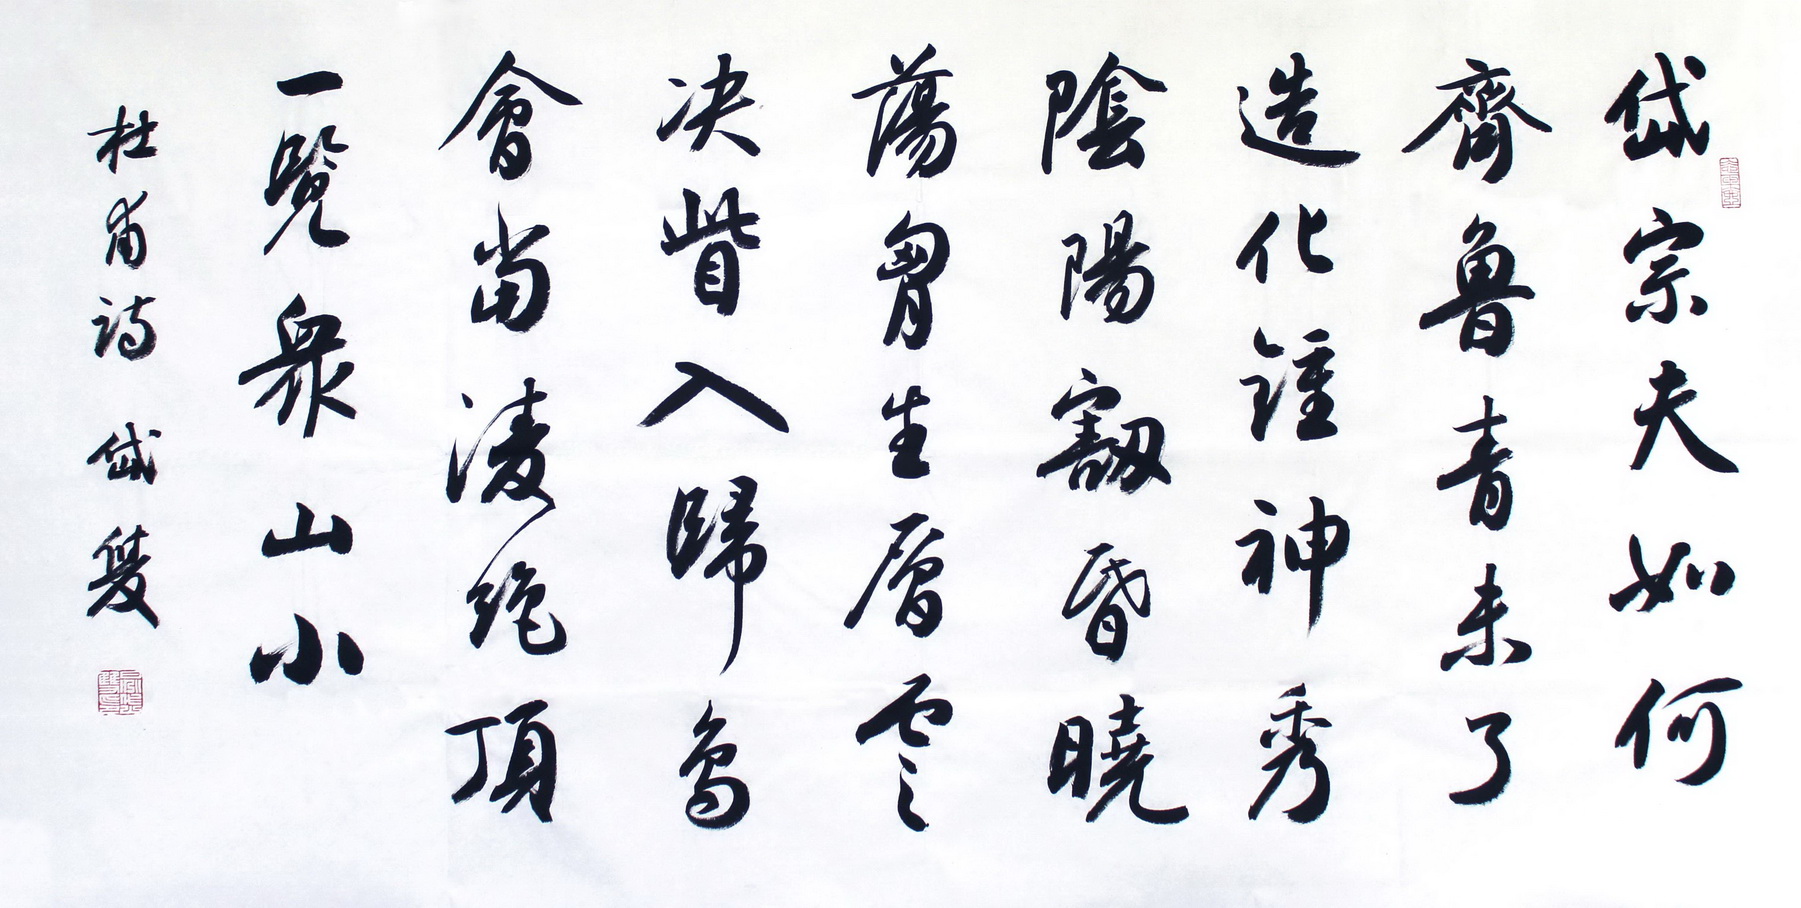 岱宗夫如何
齊魯青未了
造化鍾神秀
陰陽割昏曉
蕩胷生層雲
决眥入歸鳥
會當淩絶頂
一覽衆山小
杜甫詩 岱